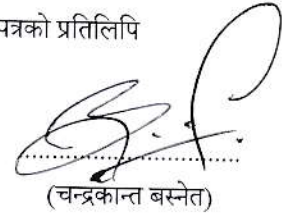 पत्रको प्रतिलिपि
(चन्द्रकान्त बस्नेत)